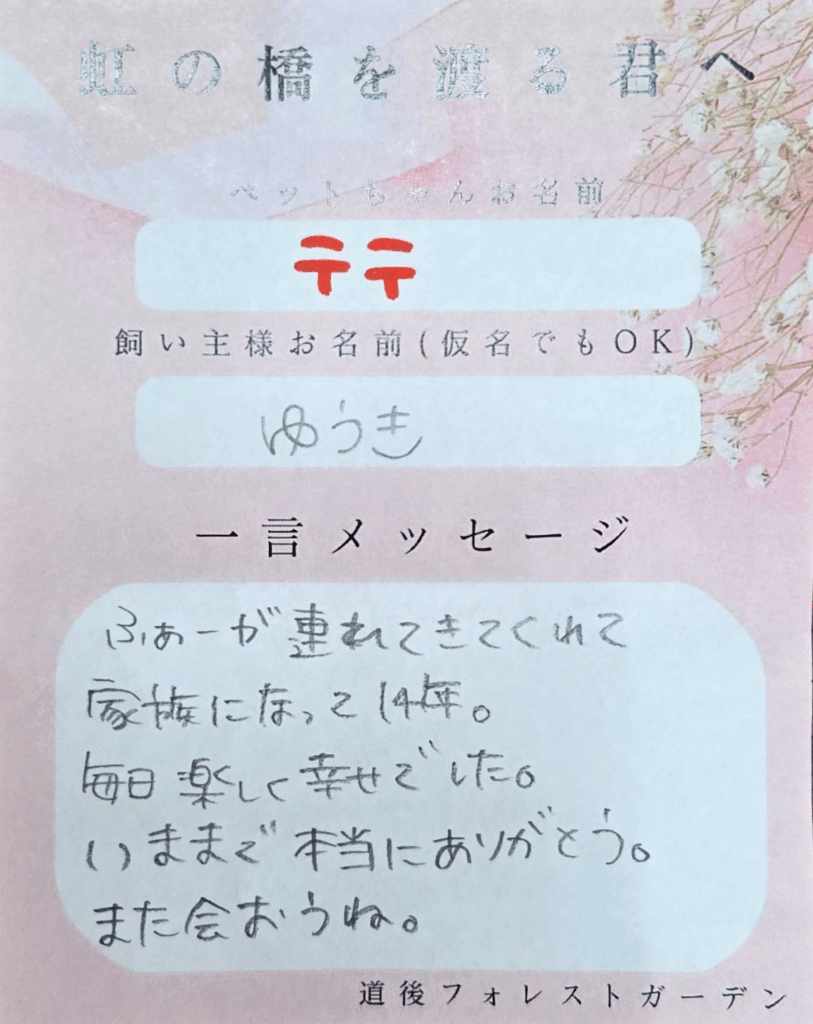 虹の橋を渡る君へ
ペットちゃんお名前
テテ
飼い主様お名前(仮名でもOK)
ゆうき
一言メッセージ
ふぁーが連れてきてくれて
家族になって14年。
毎日楽しく幸せでした。
いままで本当にありがとう。
また会おうね。
道後フォレストガーデン